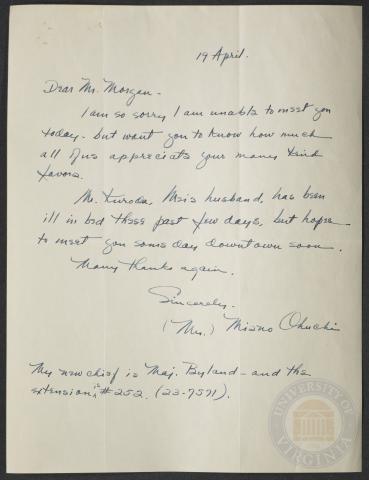 19 April.
Dear Mr. Morgan -
I am so sorry I am unable to meet you
today - but want you to know how much
all of us appreciate your many kind
favors.
Mr. Kuroda, Mei's husband, has been
ill in bed these past few days, but hopes
to meet you some day downtown soon.
Many thanks again.
Sincerely,
(Mrs.) Misao Okuchi
My new chief is Maj. Byland - and the
extension is #252. (23-7591).
UNIVERSITY OF VIRGINIA